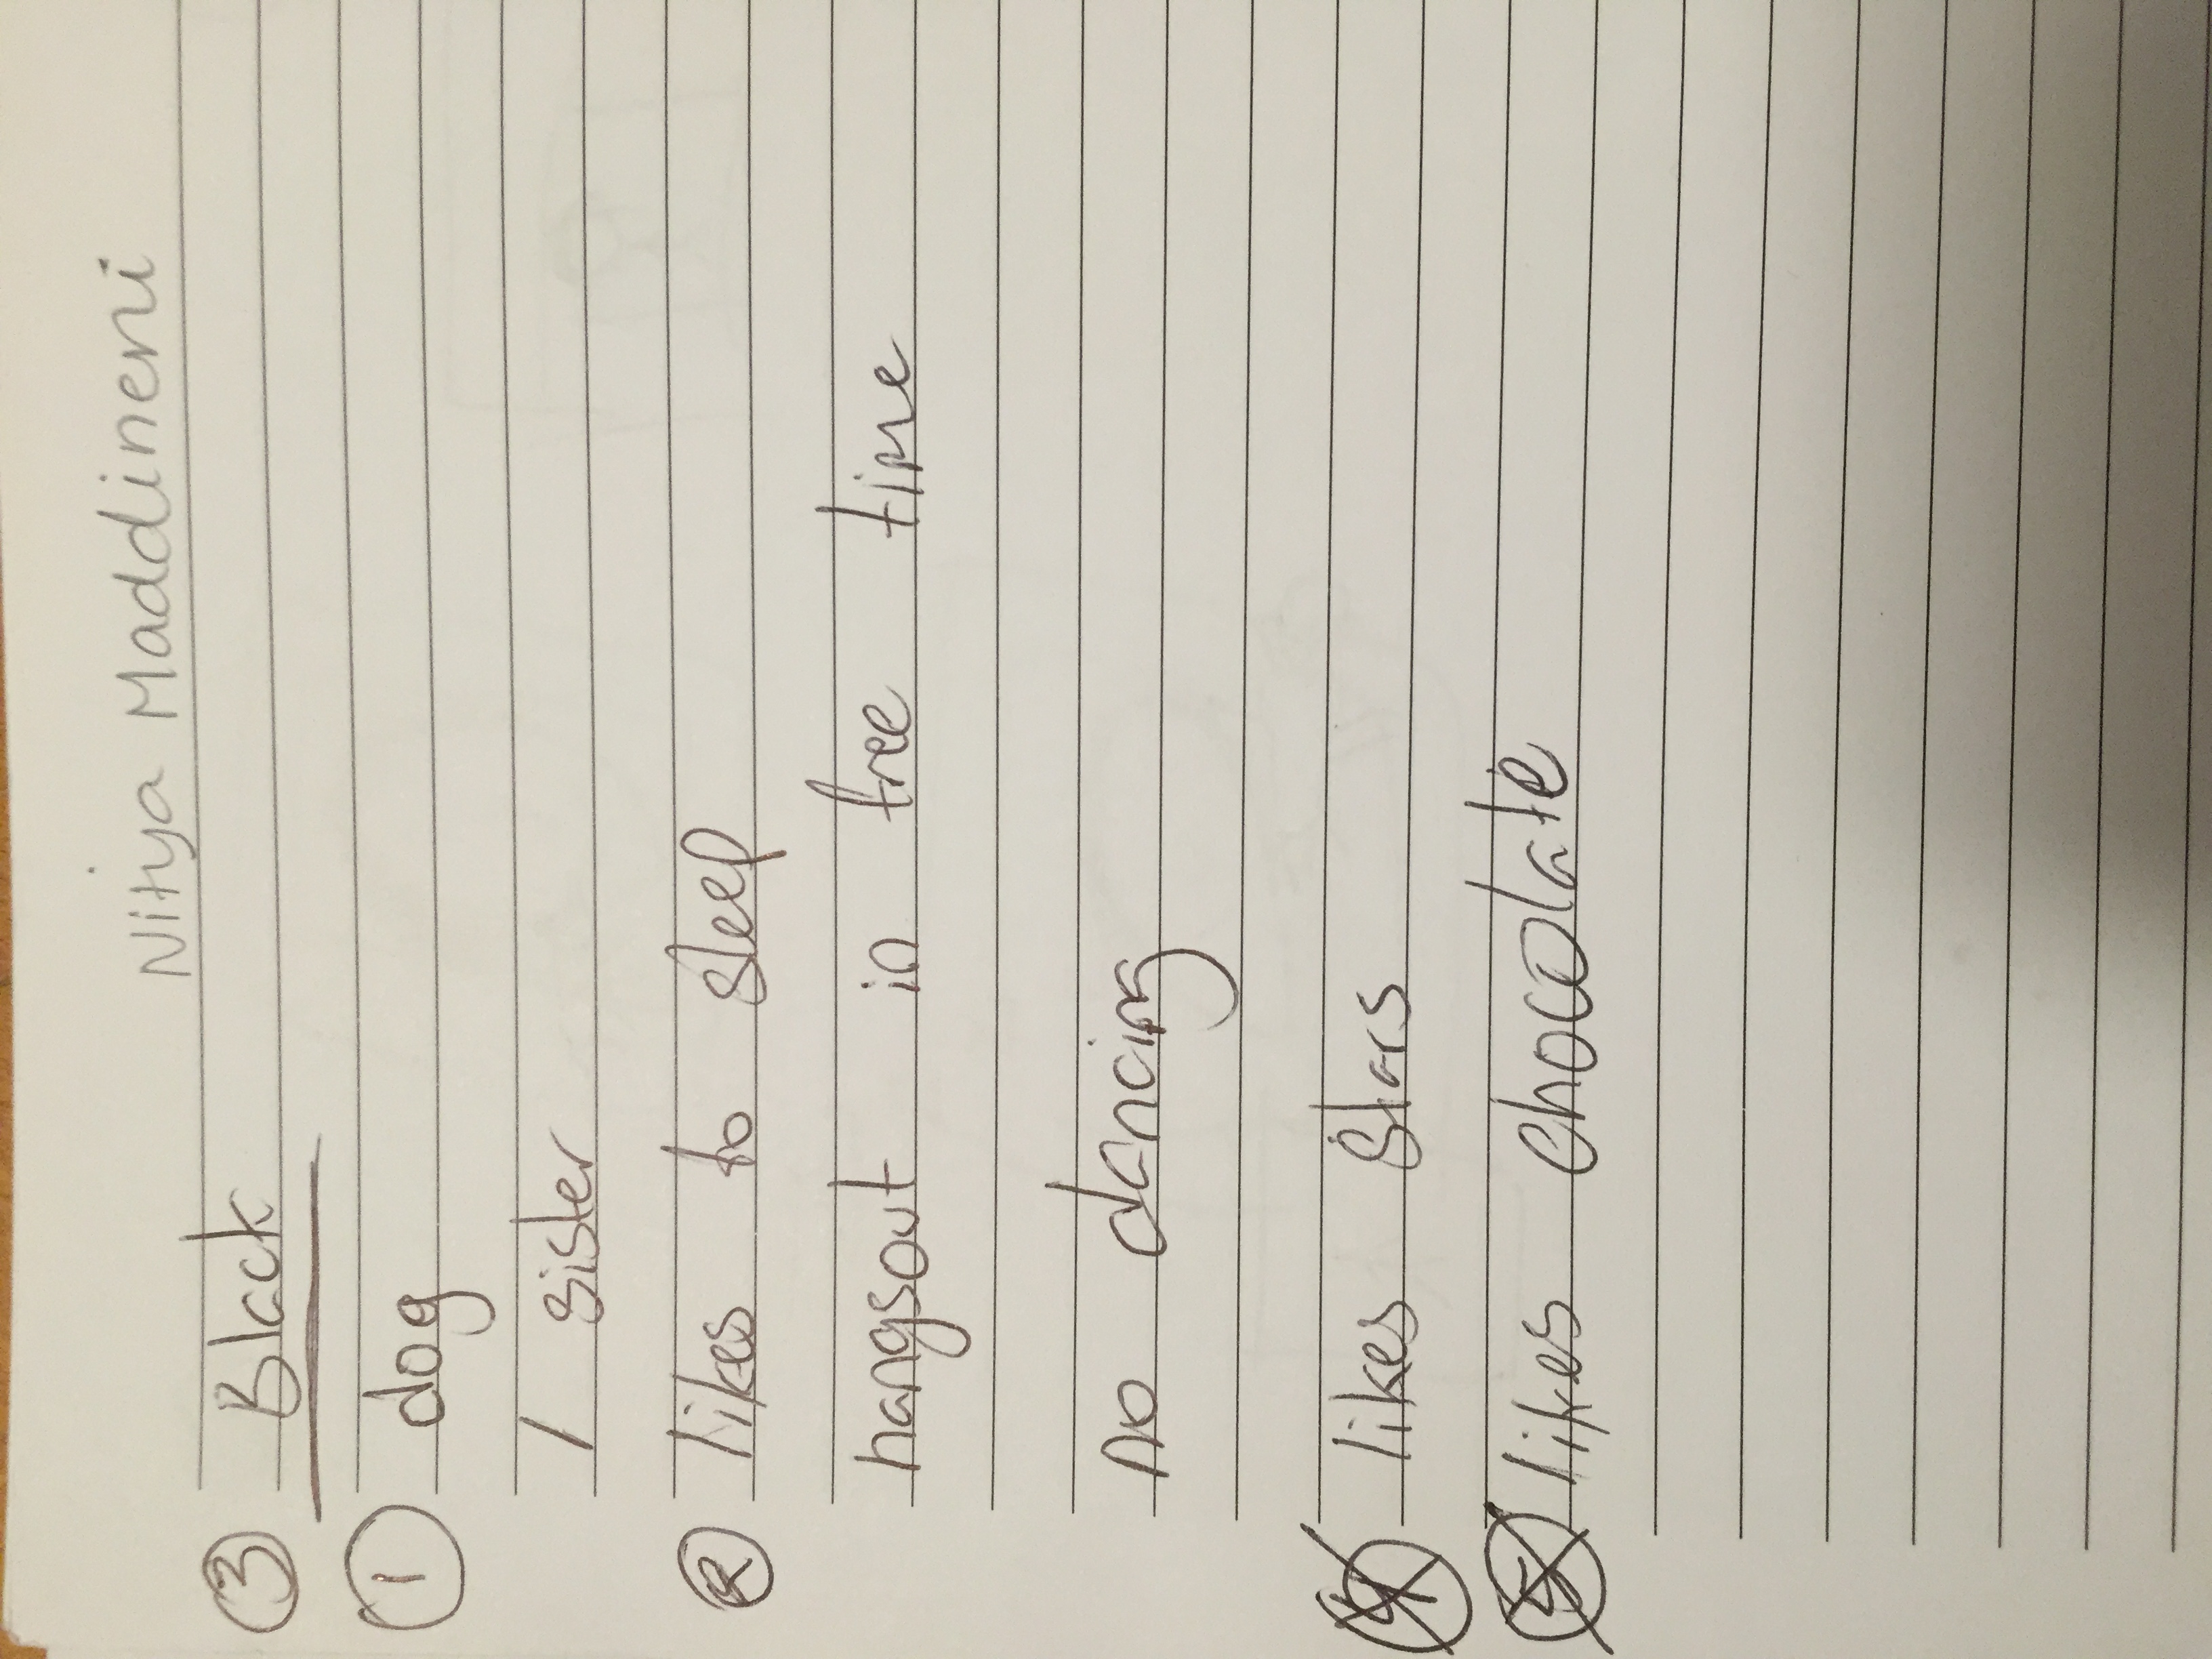 Nitya Maddineni
③ Black
① dog
1 sister
② likes to sleep
hangsout in free time
no dancing
④ likes stars
⑤ likes chocolate